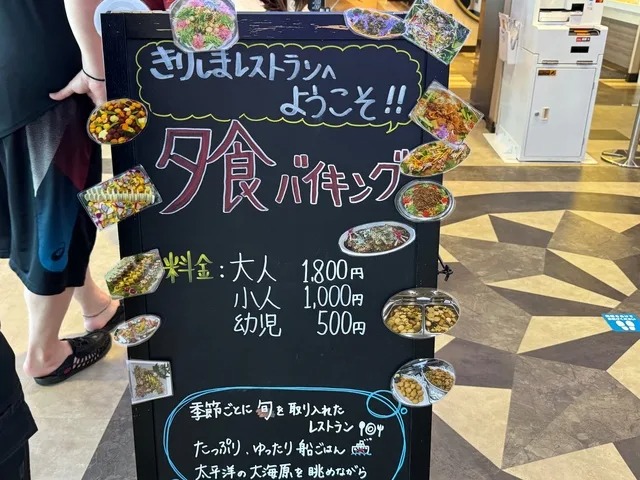 きりしまレストランへ
ようこそ!!
夕食バイキング
料金:大人 1,800円
小人 1,000円
幼児 500円
季節ごとに旬を取り入れた
レストラン
たっぷり、ゆったり船ごはん
太平洋の大海原を眺めながら